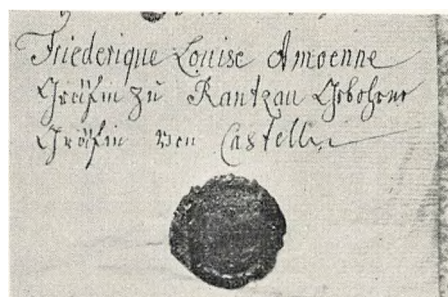 Friederique Louise Amoenne
Gräfin zu Rantzau Gebohrne
Gräfin von Castell